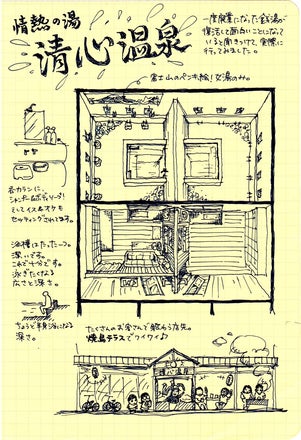 情熱の湯
清心温泉
一度廃業になった銭湯が
復活して面白いことになって
いると聞きつけて、実際に
行ってみました。
富士山のペンキ絵!女湯のみ。
各カランに、
シャンプー&ボディソープ!
そしてイス&オケも
セッティングされてます。
浴槽はたった一つ。
深いです。
これで十分です。
泳ぎたくなる
広さと深さ。
ちょうど半身浴になる
深さ。
たくさんのお客さんで賑わう店先。
焼鳥テラスでワイワイ♪
清心温泉